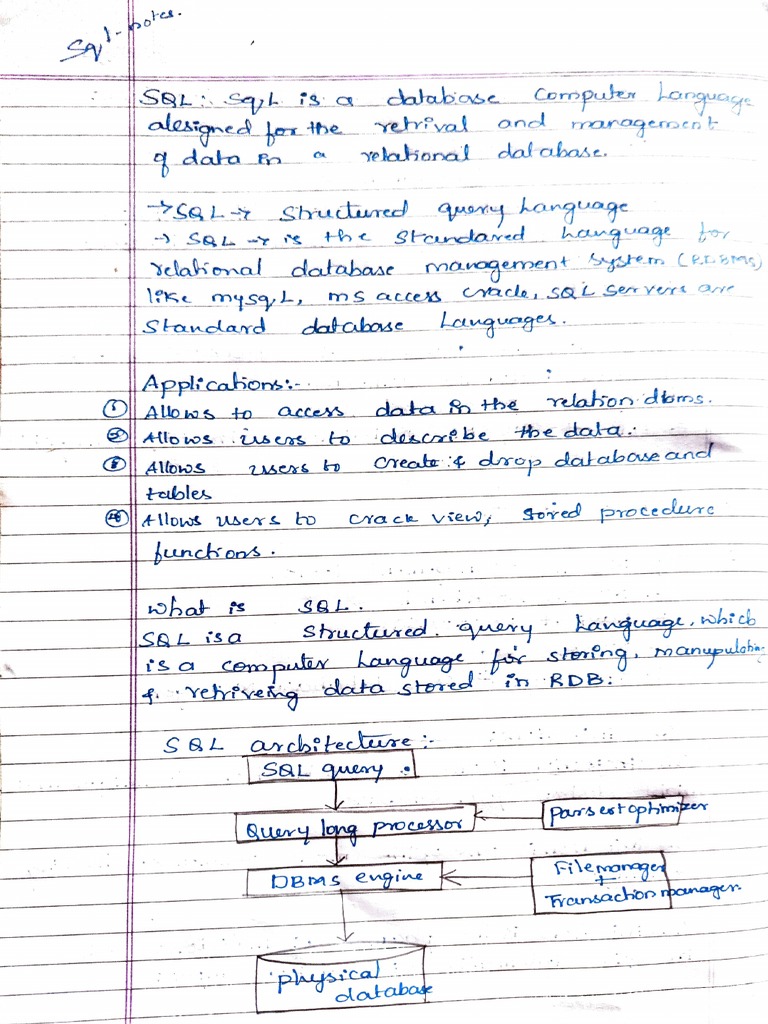 Sql-notes.
SQL: SqL is a database Computer Language
designed for the retrival and management
of data in a relational database.
→ SQL → Structured query Language
→ SQL → is the Standared Language for
relational database management System (RDBMS)
like mysqL, ms access cracle, SQL servers are
Standard database Languages.
Applications:-
① Allows to access data in the relation dbms.
② Allows users to describe the data.
③ Allows users to create & drop database and
tables
④ Allows users to crack view, stored procedure
functions.
What is SQL.
SQL is a Structured query Language, which
is a computer Language for storing, manupulatin
& retriveing data stored in RDB.
SQL architecture:-
SQL query.
Query long processor
Pars est optimizer
DBMS engine
File manager
+
Transaction manager.
physical
database